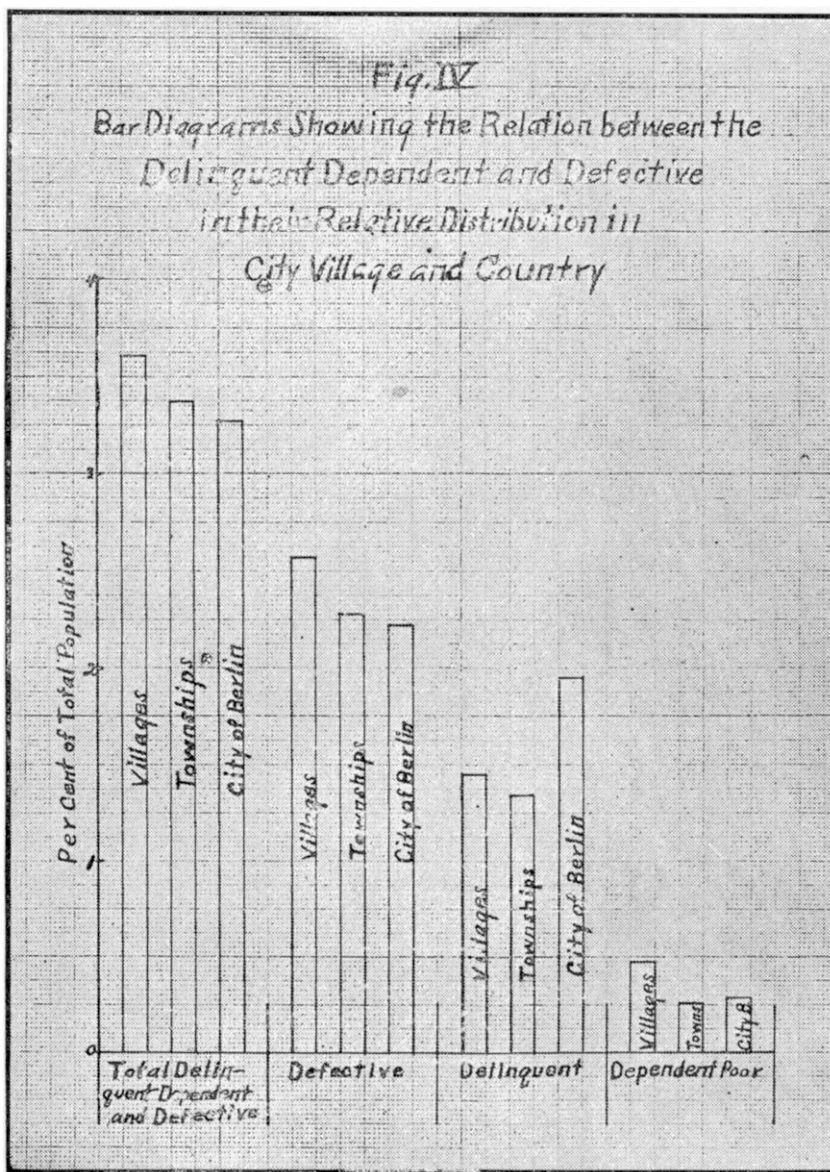 Fig. IV
Bar Diagrams Showing the Relation between the
Delinquent Dependent and Defective
in their Relative Distribution in
City Village and Country
Per Cent of Total Population
4
3
2
1
0
Villages
Townships
City of Berlin
Villages
Townships
City of Berlin
Villages
Townships
City of Berlin
Villages
Towns
City B.
Total Delin-
quent Dependent
and Defective
Defective
Delinquent
Dependent Poor